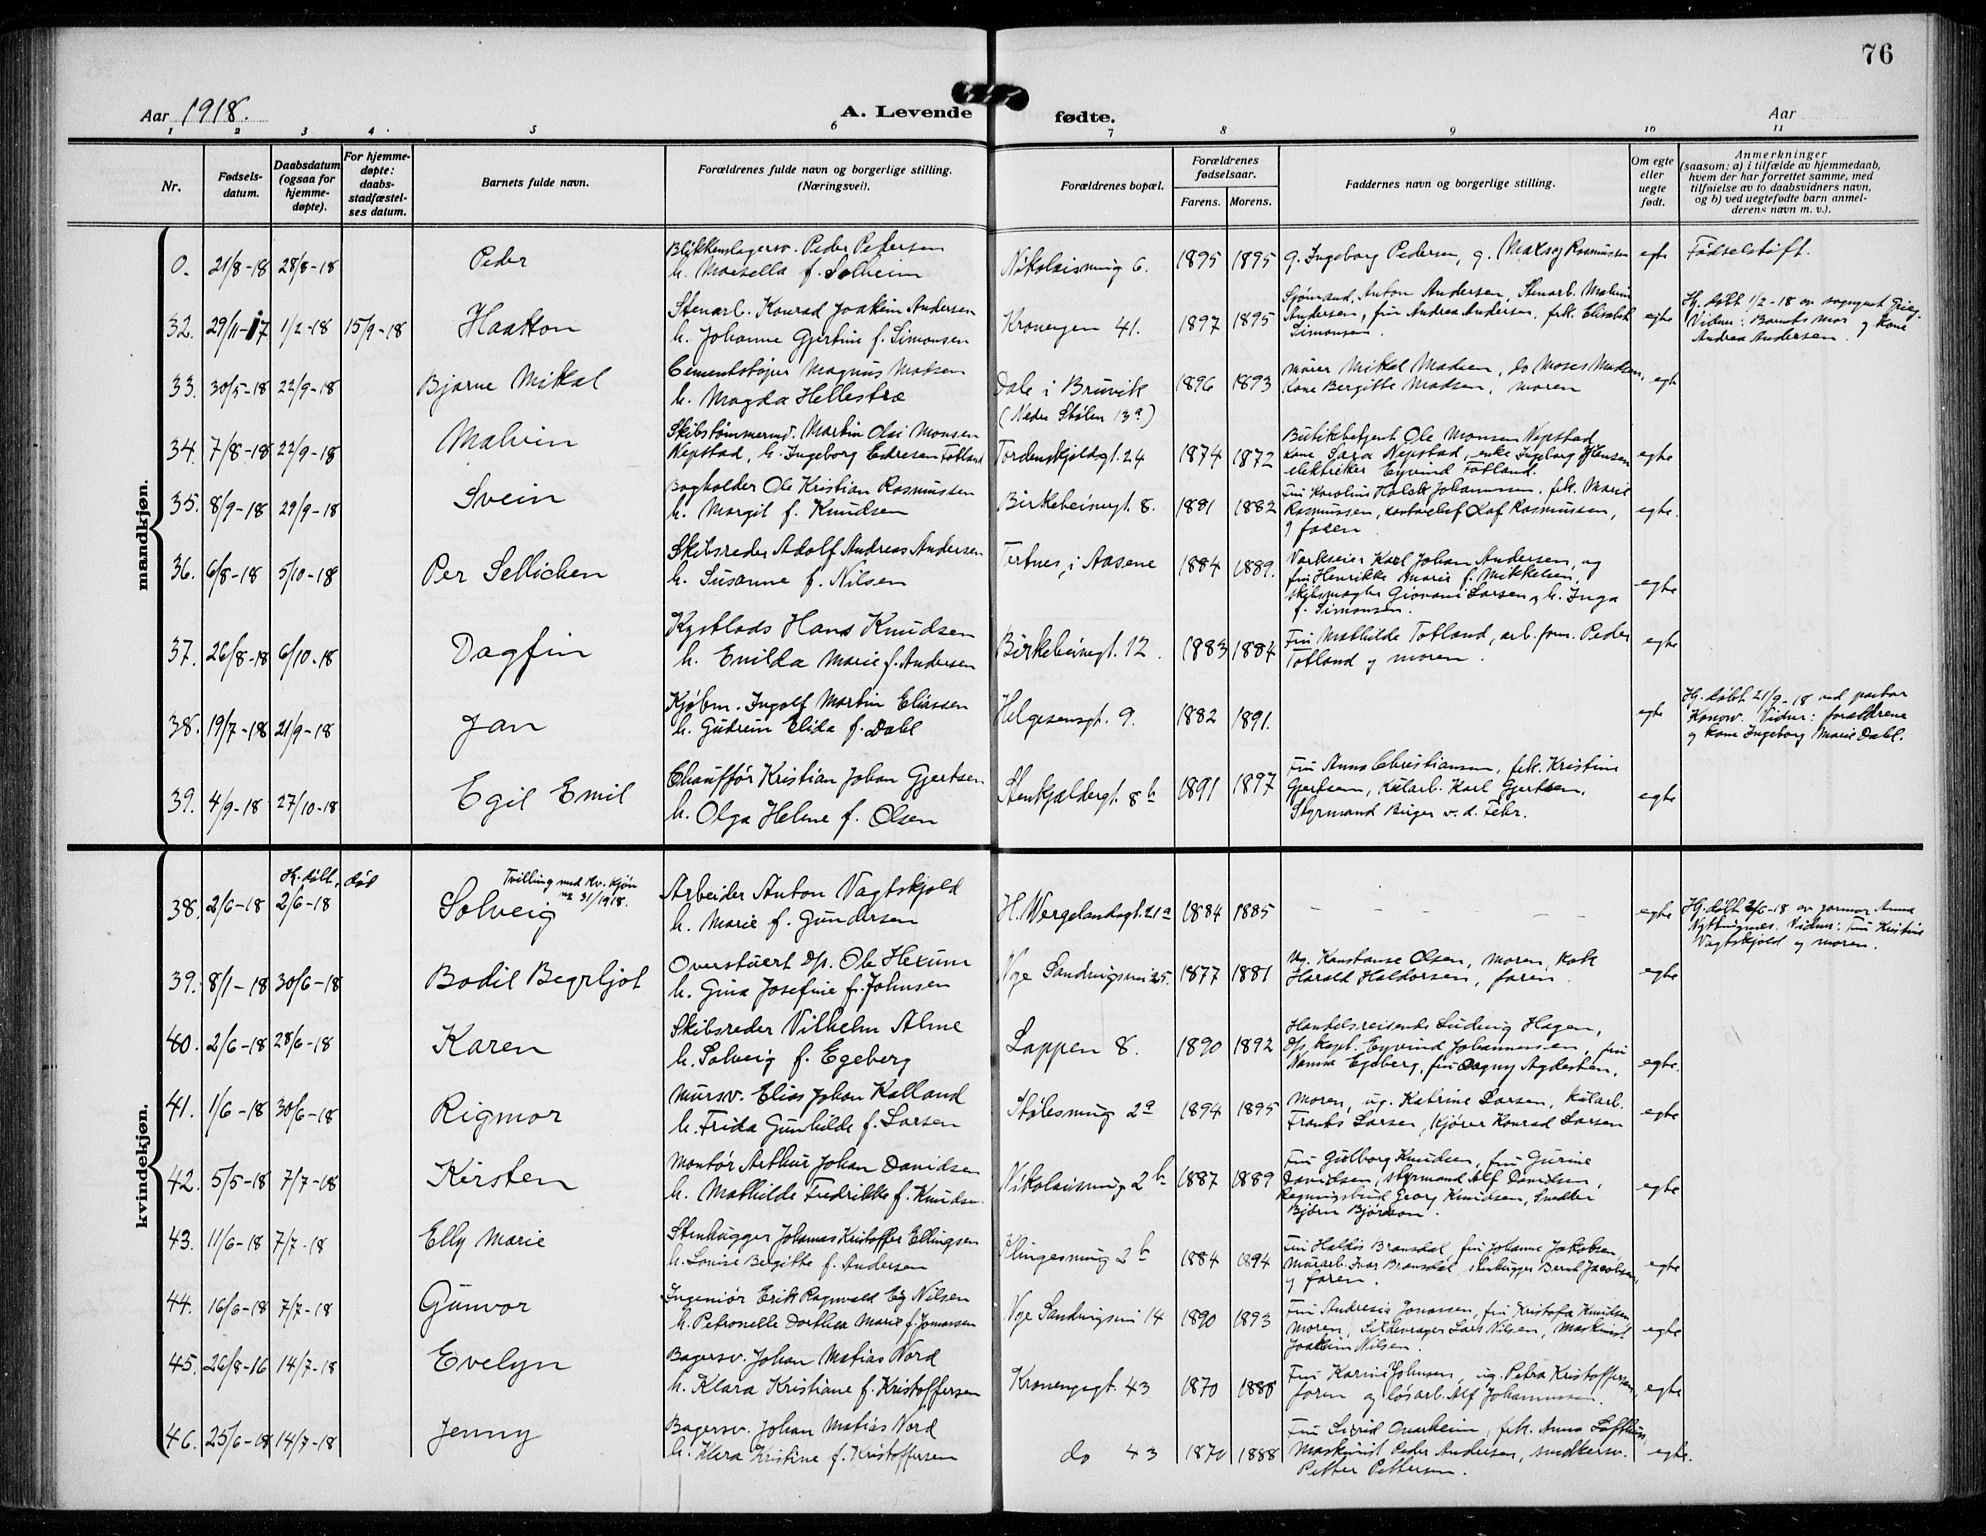 76
Aar 1918.
A. Levende fødte.
Aar
1 2 3 4 5 6 7 8 9 10 11
Nr.
Fødsels-
datum.
Daabsdatum
(ogsaa for
hjemme-
døpte).
For hjemme-
døpte:
daabs-
stadfæstel-
ses datum.
Barnets fulde navn.
Forældrenes fulde navn og borgerlige stilling.
(Næringsvei).
Forældrenes bopæl.
Forældrenes
fødselsaar.
Farens. Morens.
Faddernes navn og borgerlige stilling.
Om egte
eller
uegte
født.
Anmerkninger
(saasom: a) i tilfælde av hjemmedaab,
hvem der har forrettet samme, med
tilføielse av to daabsvidners navn,
og b) ved uegtefødte barn anmel-
derens navn m. v.).
mandkjøn.
0. 21/8-18 28/8-18 Peder
Blikkenslagersv. Peder Pedersen
h. Marsella f. Solheim
Nikolaismug 6. 1895 1895
g. Ingeborg Pedersen, g. Rasmussen
egte Fødselstift.
32. 29/11-17 1/2-18 15/9-18 Haakon
Stenarb. Konrad Joakim Andersen
h. Johanne Gjertine f. Simonsen
Kronengen 41. 1897 1895
Sjømand Anton Andersen, Stenarb. Malvin
Andersen, fru Andrea Andersen, frk. Elisabeth
Simonsen.
egte
Hj. døbt 1/2-18 av sogneprt Grieg.
Vidner: Barnets mor og kone
Andrea Andersen.
33. 30/5-18 22/9-18 Bjarne Mikal
Cementstøper Magnus Madsen
h. Magda Hellestræ
Dale i Bruvik
(Nedre Stølen 13a)
1896 1893
Murer Mikal Madsen, do Moses Madsen,
Kone Bergitte Madsen, moren
egte
34. 7/8-18 22/9-18 Malvin
Skibstømmermd. Martin Olai Monsen
Nepstad, h. Ingeborg Edresen Totland
Tordenskjoldsgt. 24 1874 1872
Butikbetjent Ole Monsen Nepstad
Kone Sara Nepstad, enke Ingeborg Hansen
elektriker Eyvind Totland.
egte
35. 8/9-18 29/9-18 Svein
Bogholder Ole Kristian Rasmussen
h. Margit f. Knudsen
Birkebeinergt. 8. 1881 1882
Fru Karoline Holck Johannessen, frk. Marie
Rasmussen, Olaf Rasmussen,
og faren
egte.
36. 6/8-18 5/10-18 Per Sellichen
Skibsreder Adolf Andreas Andersen
h. Susanne f. Nilsen
Tertnes, i Aasene 1884 1889.
Verkseier Karl Johan Andersen, og
fru Henrikke Marie f. Mikkelsen,
skibsmægler Giovani Larsen og h. Inga
f. Simonsen.
egte
37. 26/8-18 6/10-18 Dagfin
Kystlods Hans Knudsen
h. Enilda Marie f. Andersen
Birkebeinergt. 12. 1883 1884
Fru Mathilde Totland, arb. form. Peder
Totland og moren.
egte
38. 19/7-18 21/9-18 Jan
Kjøbm. Ingolf Martin Eliassen
h. Gudrun Elida f. Dahl
Helgesensgt. 9. 1882 1891.
egte
Hj. døbt 21/9-18 ved pastor
Konow. Vidner: forældrene
og kone Ingeborg Marie Dahl.
39. 4/9-18 27/10-18 Egil Emil
Chauffør Kristian Johan Gjertsen
h. Olga Helene f. Olsen
Stenkjeldergt. 8b 1891 1897
Fru Anna Christiansen, frk. Kristine
Gjertsen, Kularb. Karl Gjertsen,
Styrmand Birger v. d. Fehr.
egte
kvindekjøn.
38. 2/6-18 Hj. døbt, død 2/6-18 Solveig
Tvilling med kv. kjøn
nr 31/1918.
Arbeider Anton Vagtskjold
h. Marie f. Gundersen
H. Wergelandsgt. 21a 1884 1885
- - - - - - -
egte
Hj. døbt 2/6-18 av jormor Anna
Nyttingnes. Vidner: Fru Kristine
Vagtskjold og moren.
39. 8/1-18 30/6-18 Bodil Bergljot
Overstuert dp. Ole Hexum
h. Gina Josefine f. Johnsen
Nye Sandviksvei 25. 1877 1881
Ug. Konstanse Olsen, moren, kok
Harald Haldorsen, faren.
egte
40. 2/6-18 28/6-18 Karen
Skibsreder Vilhelm Alme
h. Solveig f. Egeberg
Lappen 8. 1890 1892
Handelsreisende Ludvig Hagen,
Dp. kapt. Eyvind Johannessen, fru
Nanna Egeberg, fru Dagny Agdestien,
egte.
41. 1/6-18 30/6-18 Rigmor
Mursv. Elias Johan Kalland
h. Frida Gunhilde f. Larsen
Stølesmug 2a 1894 1895
Moren, ug. Katrine Larsen, kularb.
Frants Larsen, Kjører Konrad Larsen
egte
42. 5/5-18 7/7-18 Kirsten
Montør Arthur Johan Davidsen
h. Mathilde Fredrikke f. Knudsen
Nikolaismug 2b 1887 1889
Fru Gulborg Knudsen, fru Gurine
Davidsen, styrmand Alf Davidsen,
Regningsbud Georg Knudsen, Snedker
Bjørn Bjørnson.
egte
43. 11/6-18 7/7-18 Elly Marie
Stenhugger Johannes Kristoffer Ellingsen
h. Louise Bergitte f. Andersen
Klingesmug 2b 1884 1894
Fru Haldis Bransdal, fru Johanne Jakobsen,
Murarb. Ivar Bransdal, stenhugger Bernt Jacobsen,
og faren.
egte
44. 16/6-18 7/7-18 Gunvor
Ingeniør Erik Ragnvald Eg Nilsen
h. Petronelle Dorthea Marie f. Jonassen
Nye Sandviksvei 14 1890 1893
Fru Andresia Jonassen, fru Kristofa Knudsen,
moren, Sildevrager Lars Nilsen, Maskinist
Joakim Nilsen.
egte
45. 26/8-16 14/7-18 Evelyn
Bagersv. Johan Matias Nord
h. Klara Kristiane f. Kristoffersen
Kronengsgt. 43 1870 1888
Fru Karine Johnsen, ug. Petra Kristoffersen,
faren og løsarb. Alf Johannessen.
egte
46. 25/6-18 14/7-18 Jenny
Bagersv. Johan Matias Nord
h. Klara Kristine f. Kristoffersen
do 43 1870 1888
Fru Sigrid Omarheim, frk. Anna Lofthus,
Maskinist Peder Andersen, snedkersv.
Petter Pettersen.
egte.